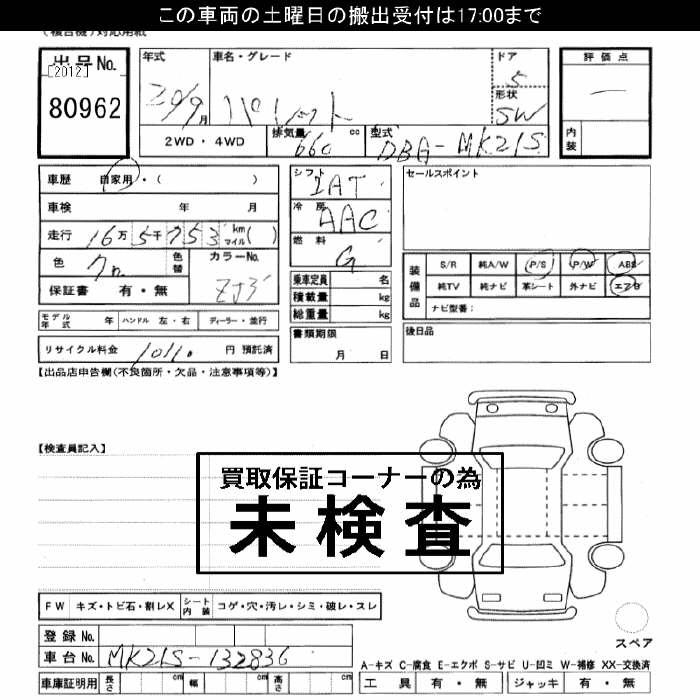 この車両の土曜日の搬出受付は17:00まで
(複合機)対応用紙
出品No.
[2012]
80962
年式
20/9月
車名・グレード
パレット
ドア
5
形状
SW
2WD・4WD
排気量 660 cc
型式 DBA-MK21S
評価点
内装
車歴 自家用・( )
車検 年 月
走行 16万5千753 km マイル( )
色
色替
カラーNo.
ZJ3
保証書 有・無
モデル年式 年 ハンドル 左・右 ディーラー・並行
リサイクル料金 円 預託済
シフト
IAT
冷房
AAC
燃料
G
乗車定員 名
積載量 kg
総重量 kg
書類期限
月 日
セールスポイント
装備品
S/R 純A/W P/S P/W ABS
純TV 純ナビ 革シート 外ナビ エアB
ナビ型番:
後日品
【出品店申告欄(不良箇所・欠品・注意事項等)】
【検査員記入】
買取保証コーナーの為
未検査
FW キズ・トビ石・割レX シート内装 コゲ・穴・汚レ・シミ・破レ・スレ
スペア
登録No.
車台No. MK21S-132836
車庫証明用 長さ cm 幅 cm 高さ cm
A-キズ C-腐食 E-エクボ S-サビ U-凹ミ W-補修 XX-交換済
工具 有・無 ジャッキ 有・無